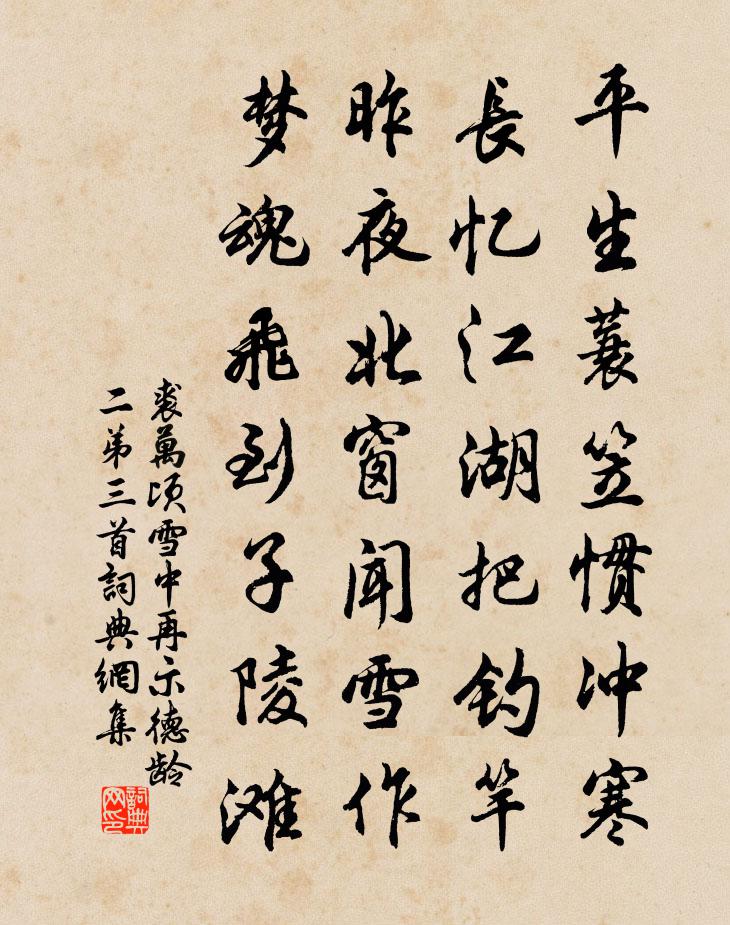 平生蓑笠惯冲寒
長忆江湖把钓竿
昨夜北窗闻雪作
梦魂飛到子陵滩
裘萬顷雪中再示德龄
二第三首詞典網集
詞典网印